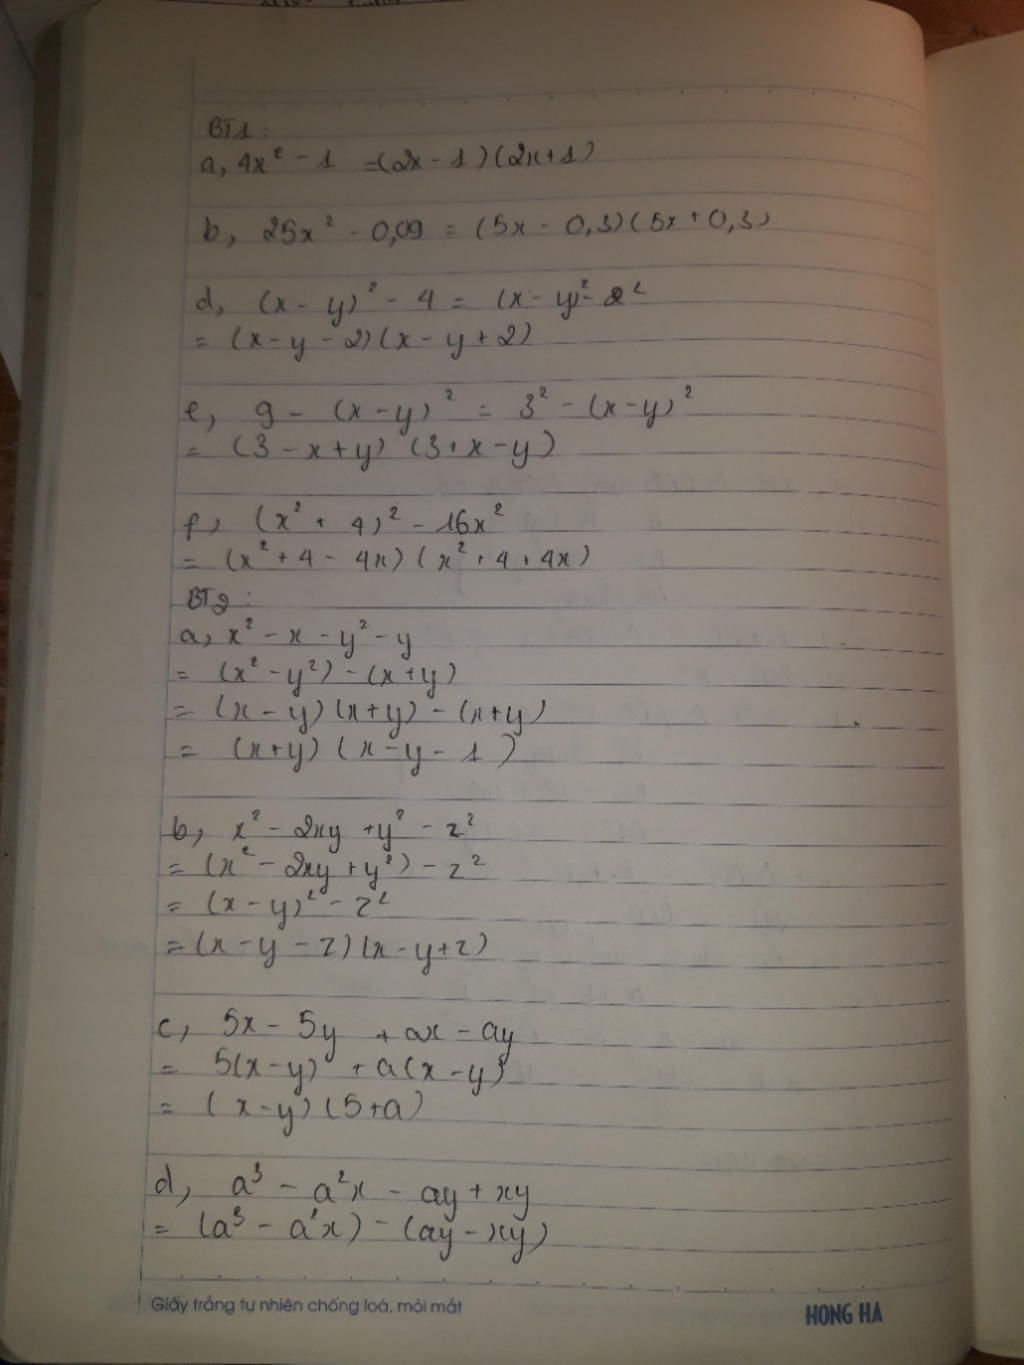 BT1:
a, 4x² - 1 = (2x - 1)(2x + 1)
b, 25x² - 0,09 = (5x - 0,3)(5x + 0,3)
d, (x - y)² - 4 = (x - y)² - 2²
= (x - y - 2)(x - y + 2)
e, 9 - (x - y)² = 3² - (x - y)²
= (3 - x + y)(3 + x - y)
f, (x² + 4)² - 16x²
= (x² + 4 - 4x)(x² + 4 + 4x)
BT2:
a, x² - x - y² - y
= (x² - y²) - (x + y)
= (x - y)(x + y) - (x + y)
= (x + y)(x - y - 1)
b, x² - 2xy + y² - z²
= (x² - 2xy + y²) - z²
= (x - y)² - z²
= (x - y - z)(x - y + z)
c, 5x - 5y + ax - ay
= 5(x - y) + a(x - y)
= (x - y)(5 + a)
d, a³ - a²x - ay + xy
= (a³ - a²x) - (ay - xy)
Giấy trắng tự nhiên chống loá, mỏi mắt
HONG HA